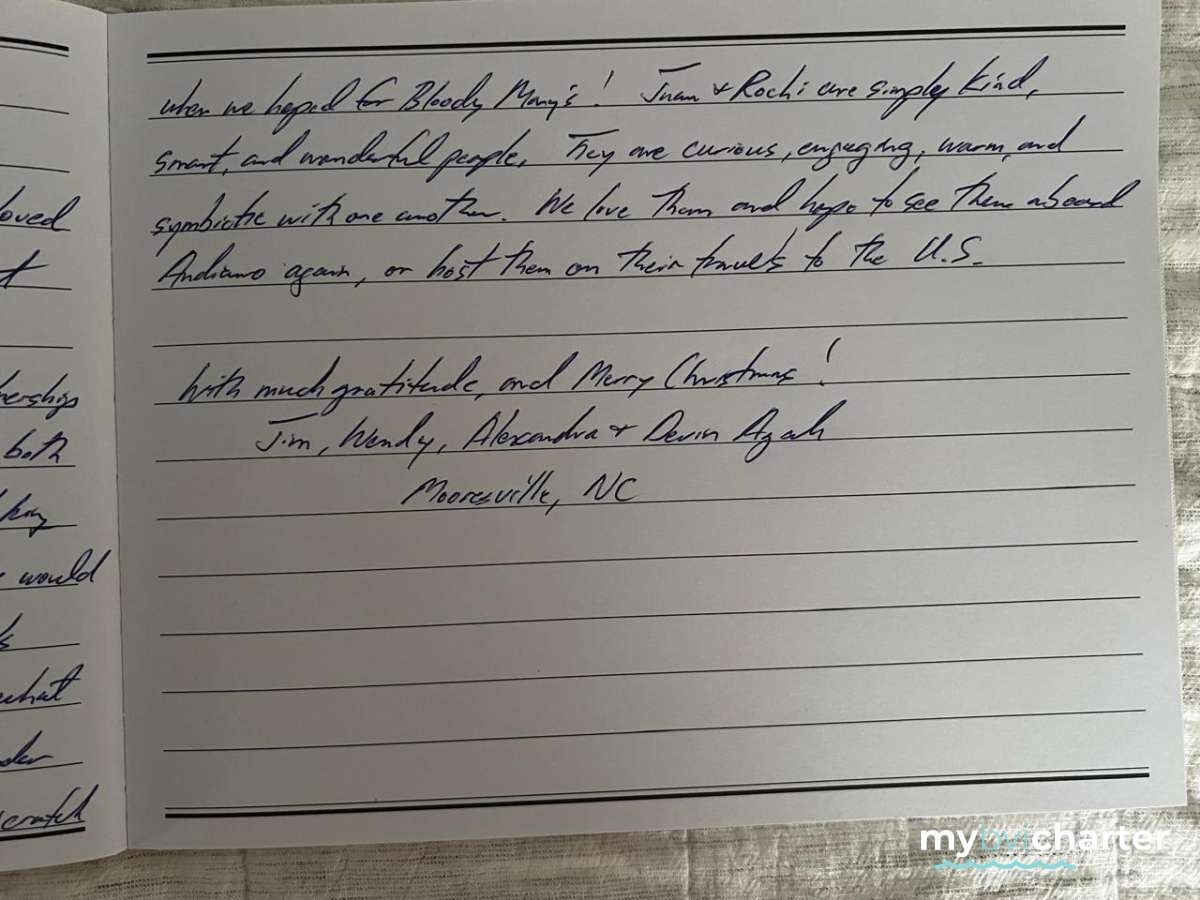 oved
t
nerships
both
would
what
der
scratch
when we hoped for Bloody Mary's! Juan & Rochi are simply kind,
smart, and wonderful people. They are curious, engaging, warm, and
symbiotic with one another. We love them and hope to see them aboard
Andiamo again, or host them on their travels to the U.S.
With much gratitude, and Merry Christmas!
Jim, Wendy, Alexandra & Devin
Mooresville, NC
mybvicharter